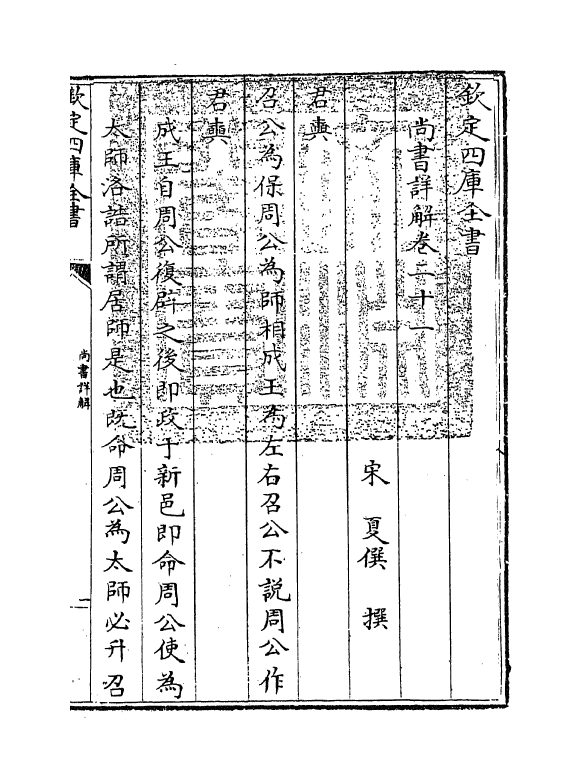 欽定四庫全書
尚書詳解卷二十一
宋 夏僎 撰
君奭
召公為保周公為師相成王為左右召公不說周公作
君奭
成王自周公復辟之後即政于新邑即命周公使為
太師洛誥所謂居師是也既命周公為太師必升召
欽定四庫全書
尚書詳解
一